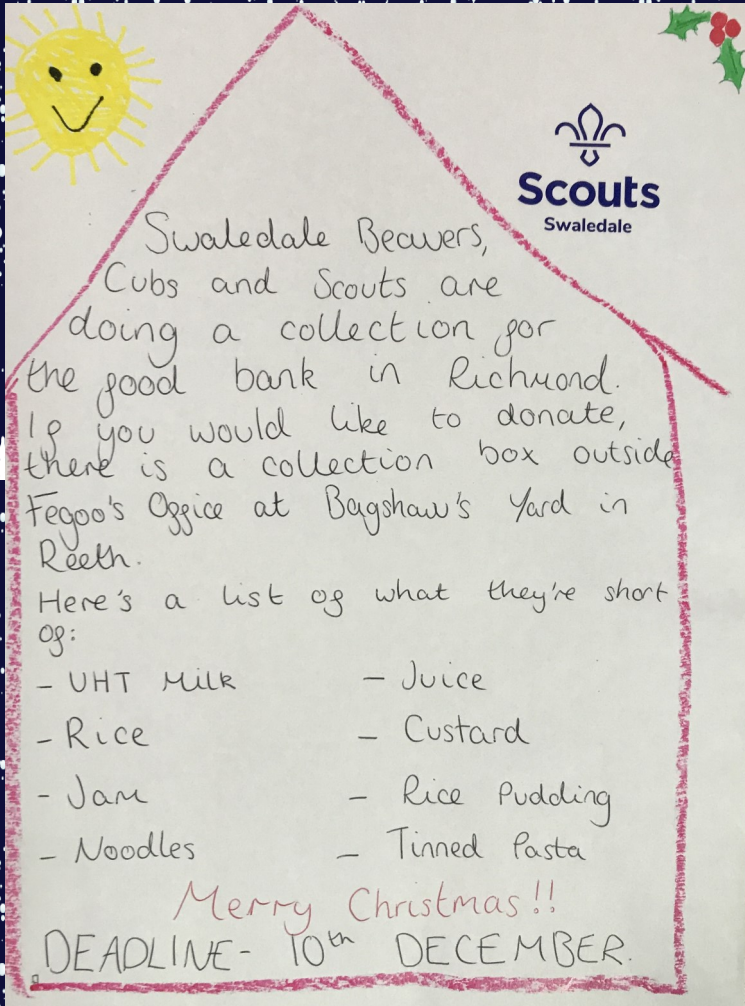 Scouts
Swaledale
Swaledale Beavers,
Cubs and Scouts are
doing a collection for
the food bank in Richmond.
If you would like to donate,
there is a collection box outside
Fegoo's Office at Bagshaw's Yard in
Reeth.
Here's a list of what they're short
of:
- UHT Milk - Juice
- Rice - Custard
- Jam - Rice Pudding
- Noodles - Tinned Pasta
Merry Christmas!!
DEADLINE- 10th DECEMBER.